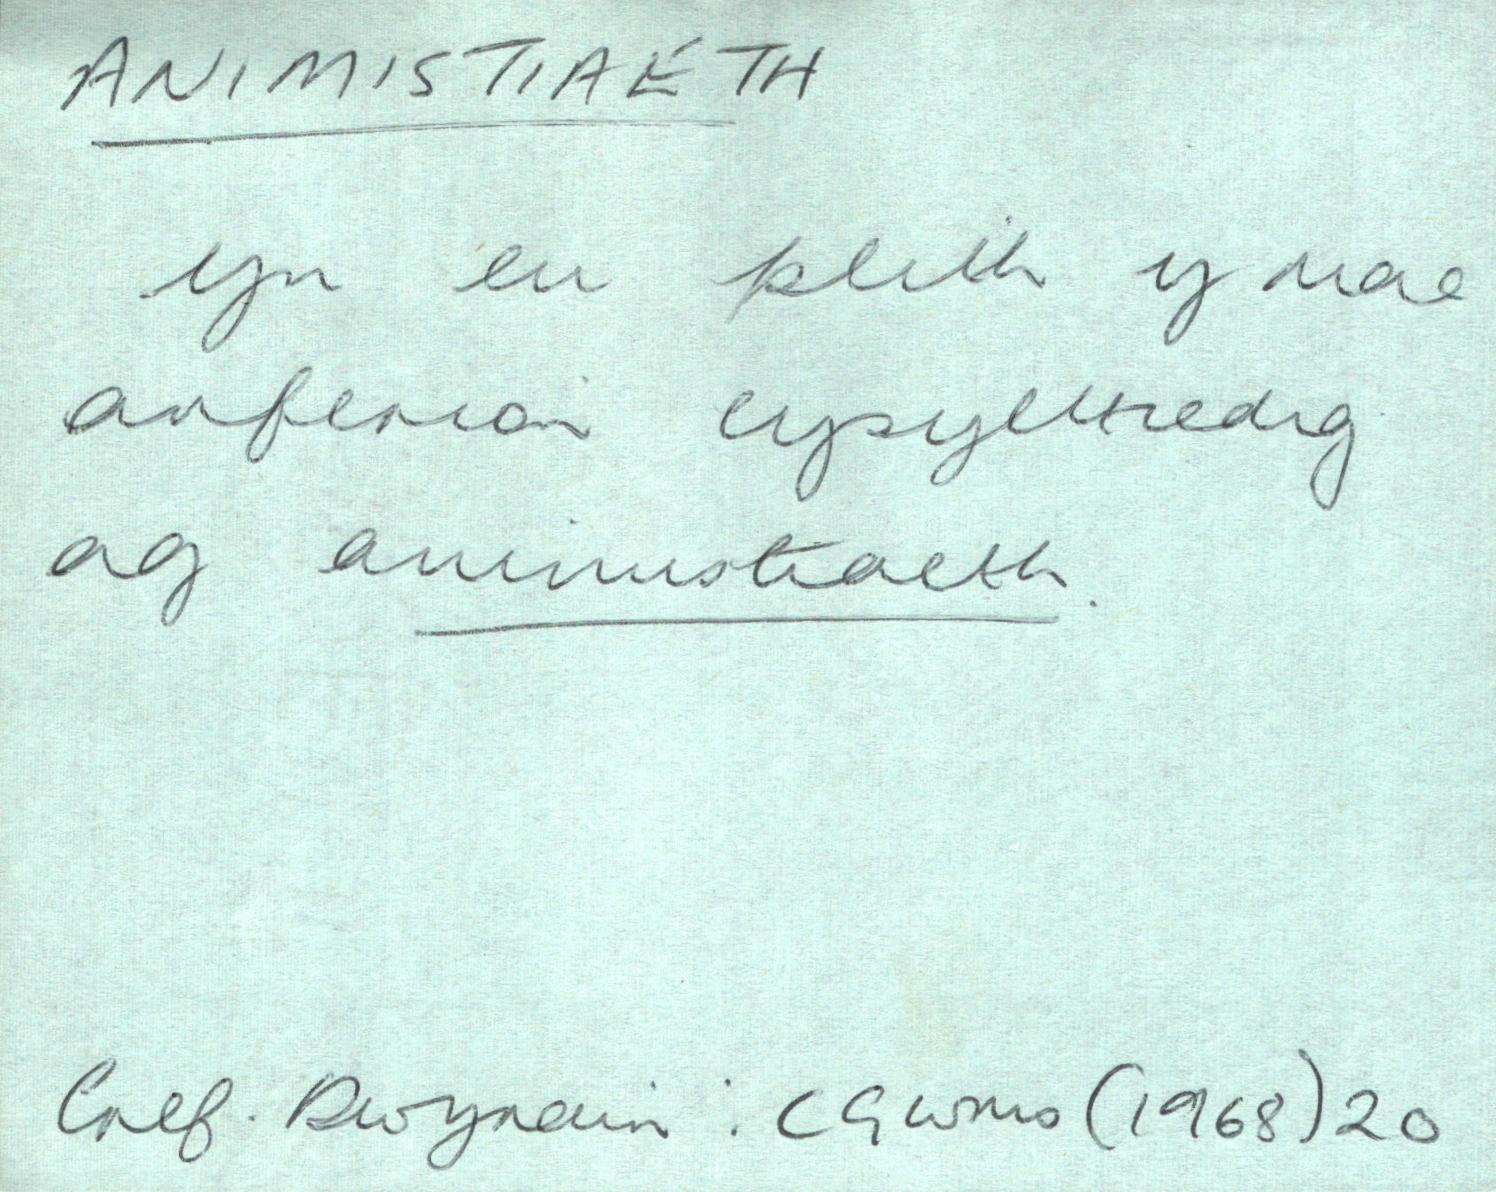 ANIMISTIAETH
yn eu plith y mae
arferion cysylltiedig
ag animistiaeth.
Cref. Dwyrain : CGwms (1968) 20